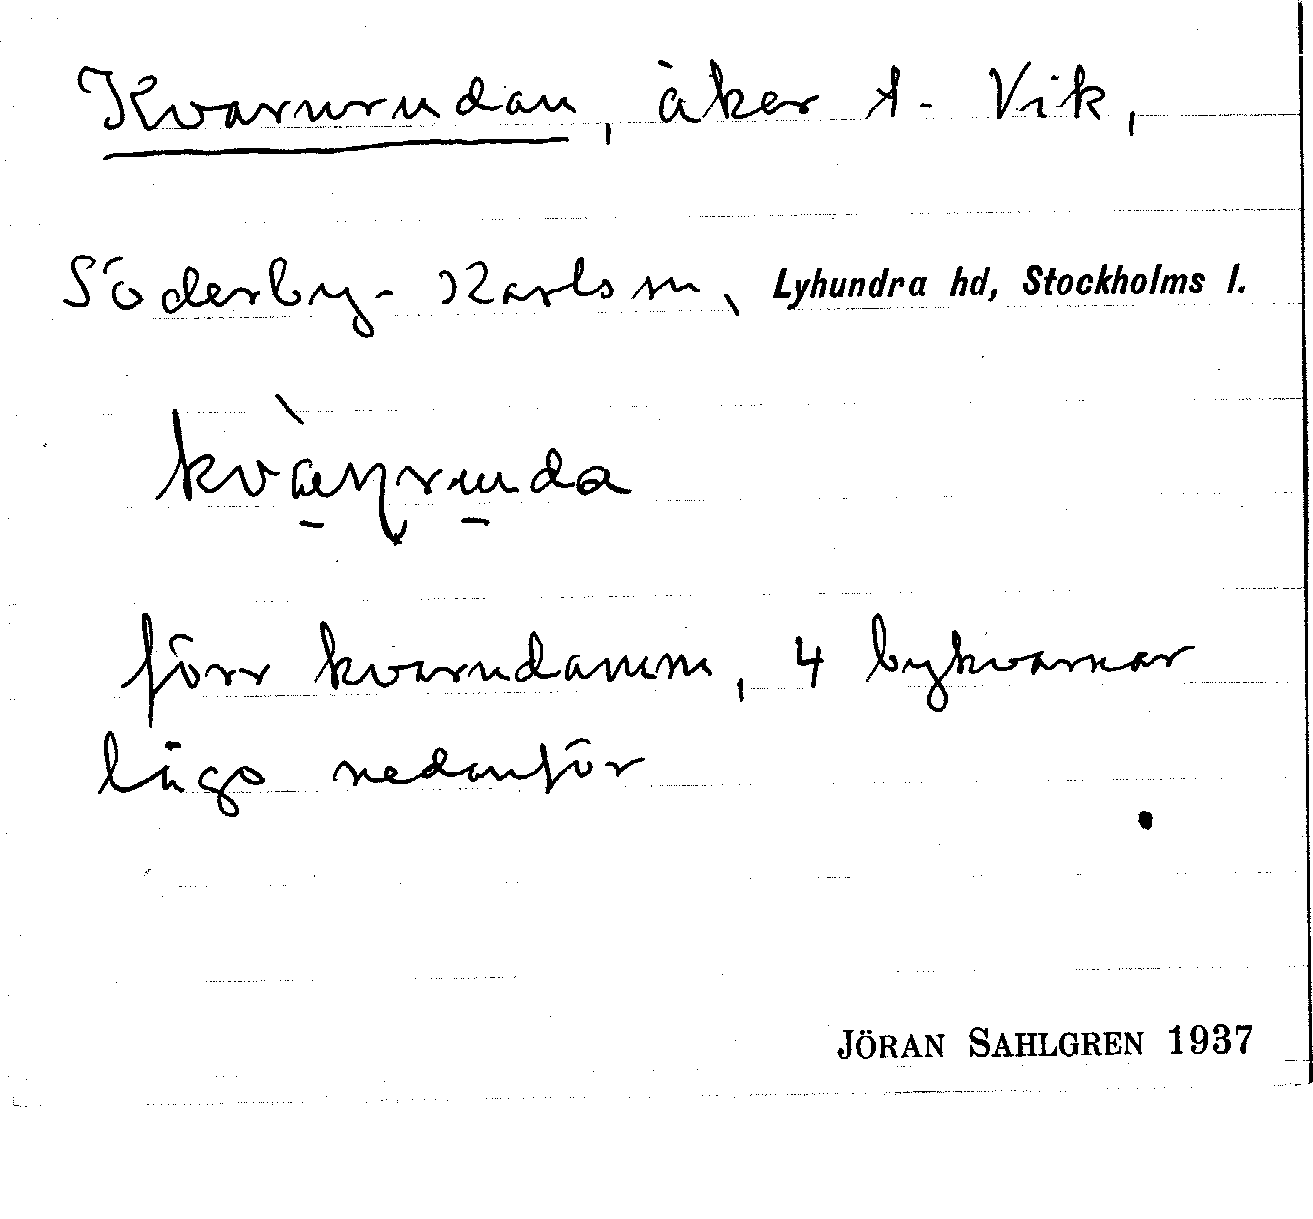 Kvarnrudan, åker t. Vik,
Söderby-Karls sn, Lyhundra hd, Stockholms l.
kvàɳruda
förr kvarndamm, 4 bykvarnar
lågo nedanför
JÖRAN SAHLGREN 1937